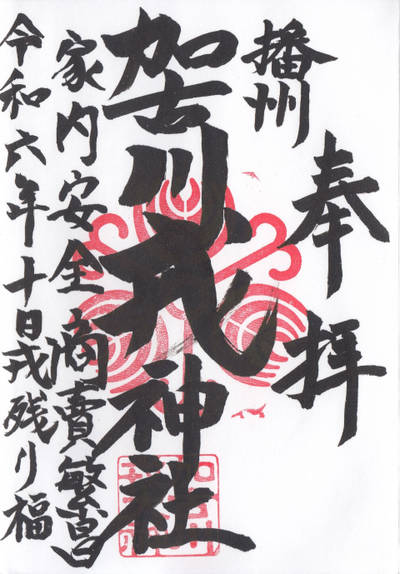 奉拝
播州
加古川戎神社
家内安全商賣繁昌
令和六年十日戎残り福